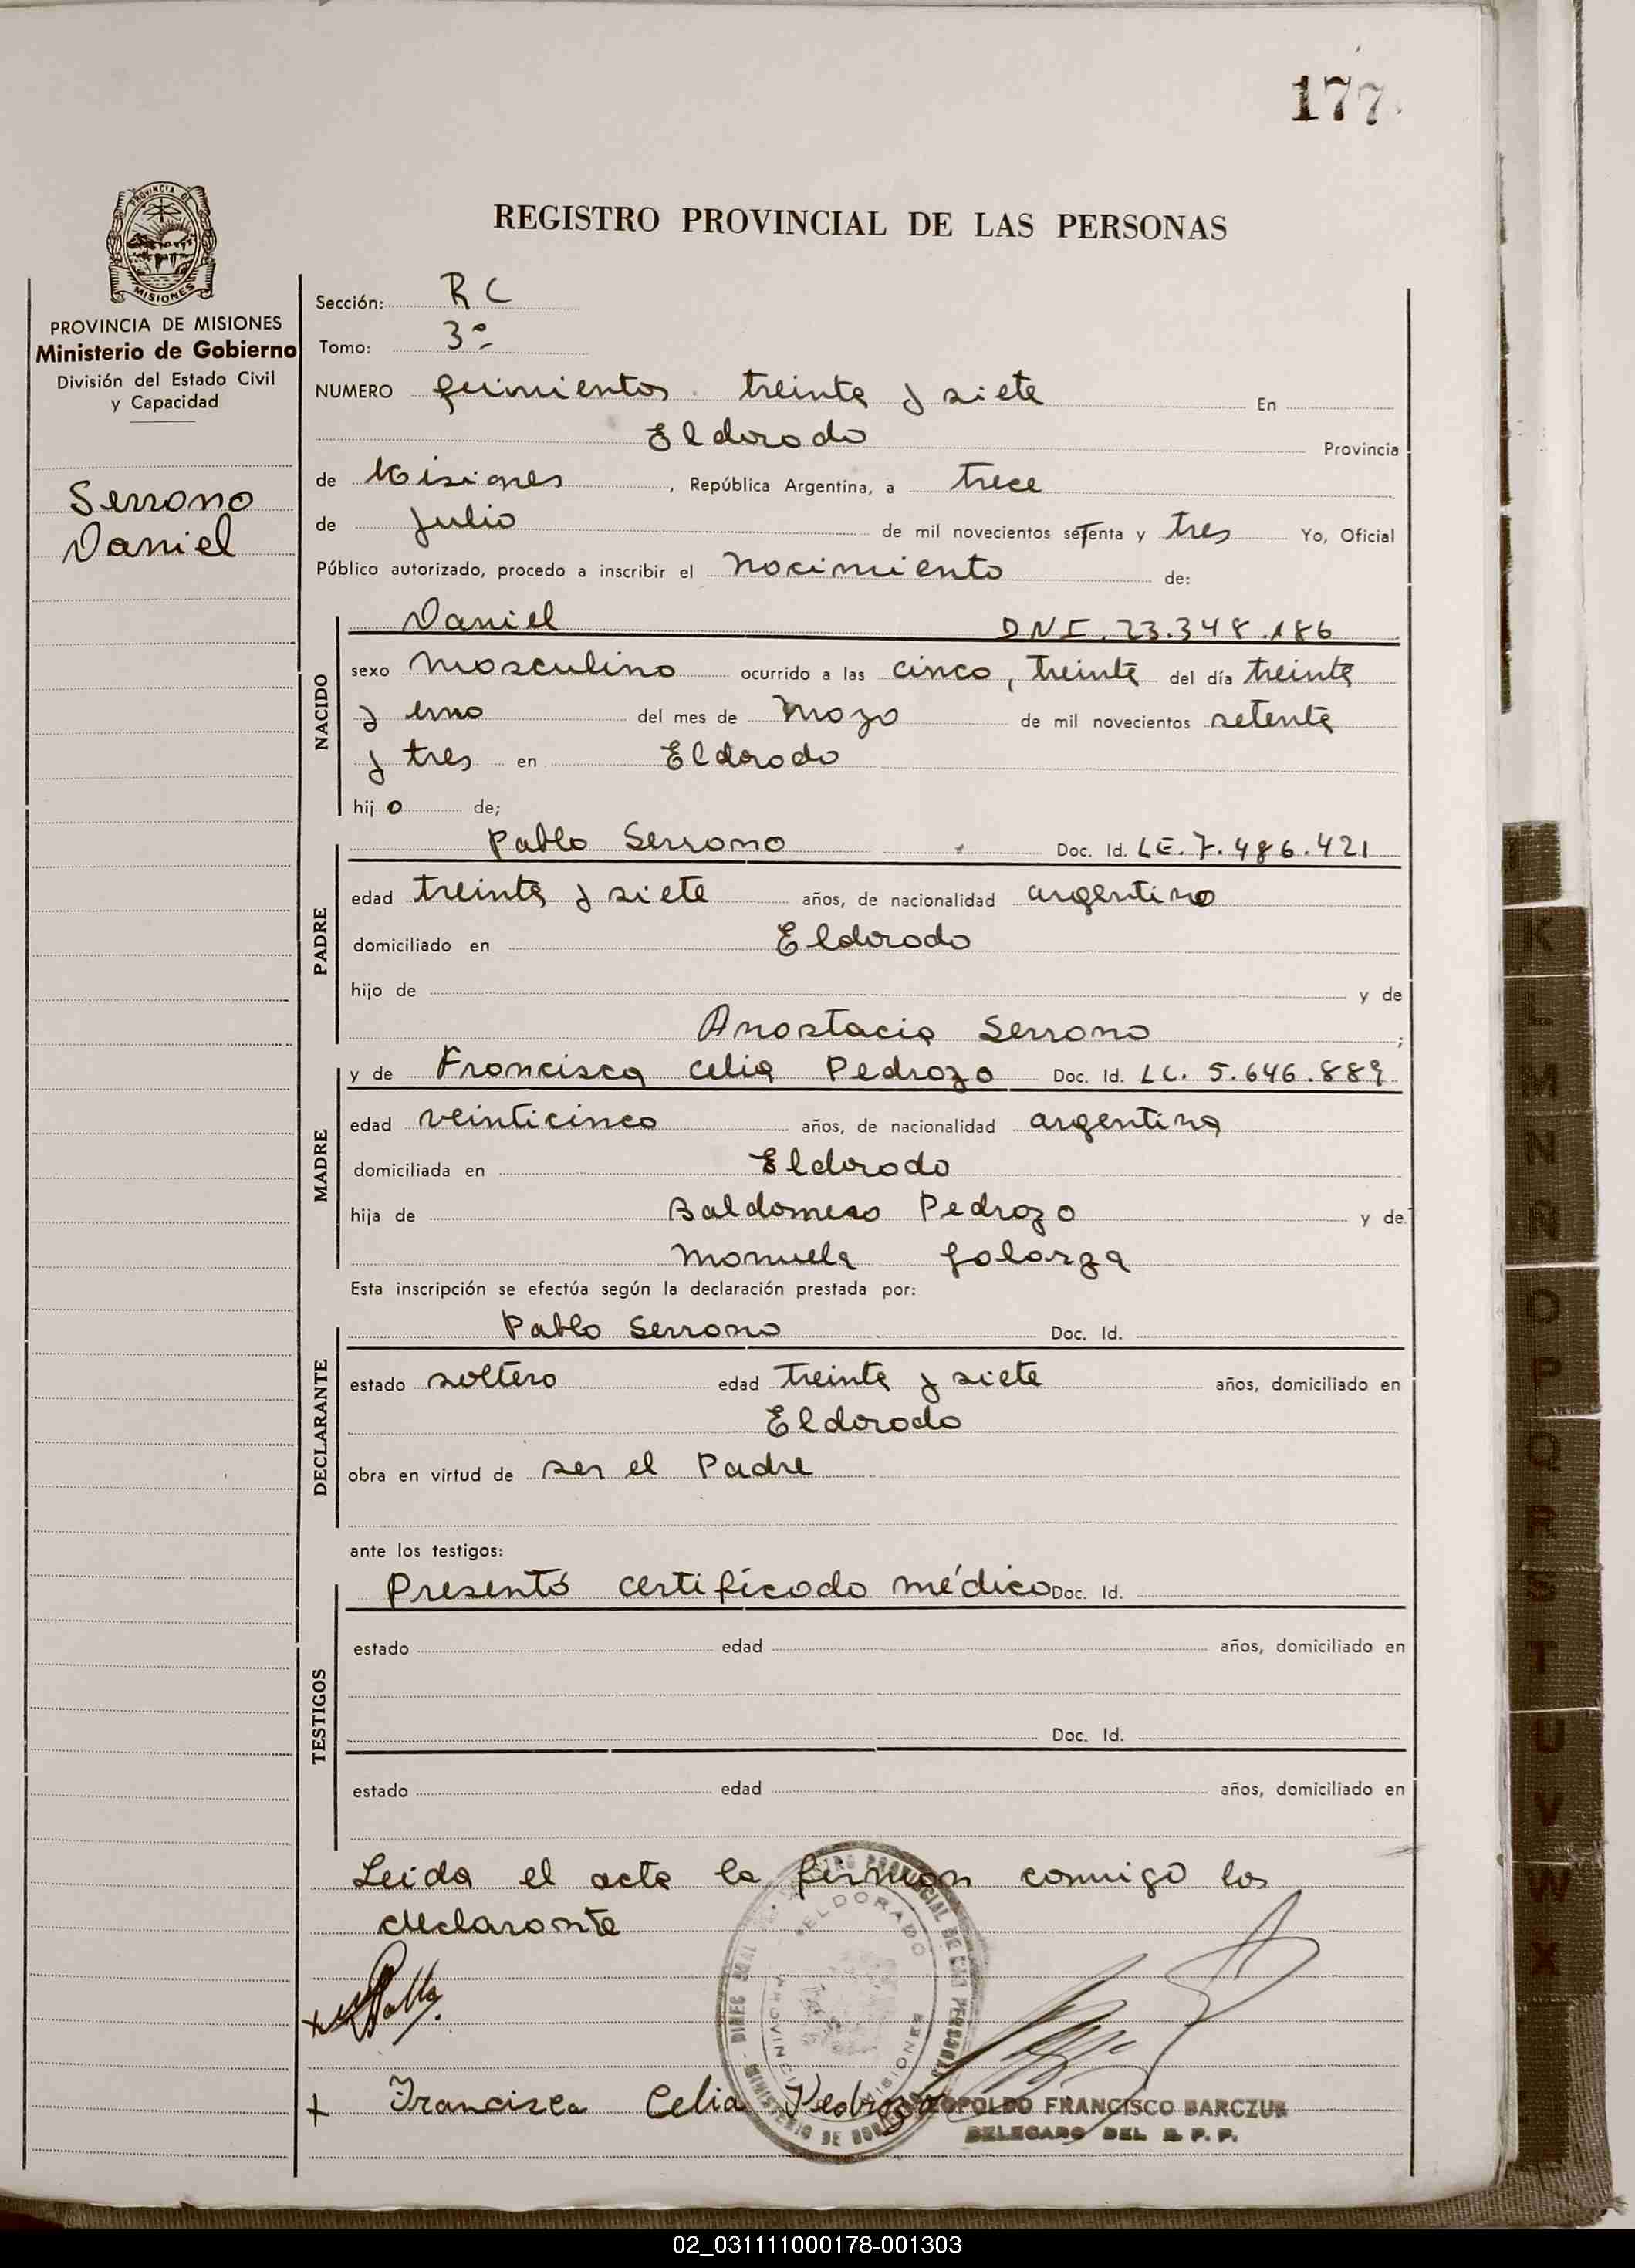 177
REGISTRO PROVINCIAL DE LAS PERSONAS
PROVINCIA DE MISIONES
PROVINCIA DE MISIONES
Ministerio de Gobierno
División del Estado Civil
y Capacidad
Serrano
Daniel
Sección: R C
Tomo: 3º
NUMERO quinientos treinta y siete En
Eldorado Provincia
de Misiones, República Argentina, a trece
de Julio de mil novecientos setenta y tres Yo, Oficial
Público autorizado, procedo a inscribir el Nacimiento de:
NACIDO
Daniel DNI. 23.348.186
sexo masculino ocurrido a las cinco, treinta del día treinta
y uno del mes de Mayo de mil novecientos setenta
y tres en Eldorado
hij o de;
PADRE
Pablo Serrano Doc. Id. LE. 7.486.421
edad treinta y siete años, de nacionalidad argentino
domiciliado en Eldorado
hijo de y de
Anastacia Serrano;
MADRE
y de Francisca Celia Pedrozo Doc. Id. LC. 5.646.889
edad veinticinco años, de nacionalidad argentina
domiciliada en Eldorado
hija de Baldomero Pedrozo y de
Manuela Galarza
Esta inscripción se efectúa según la declaración prestada por:
DECLARANTE
Pablo Serrano Doc. Id.
estado soltero edad treinta y siete años, domiciliado en
Eldorado
obra en virtud de ser el Padre
ante los testigos:
TESTIGOS
Presentó certificado médico Doc. Id.
estado edad años, domiciliado en
Doc. Id.
estado edad años, domiciliado en
Leida el acta la firman conmigo los
declarante
ELDORADO
Francisca Celia Pedrozo
LEOPOLDO FRANCISCO BARCZUK
DELEGADO DEL R. P. P.
K
L
M
N
Ñ
O
P
Q
R
S
T
U
V
W
X
02_031111000178-001303